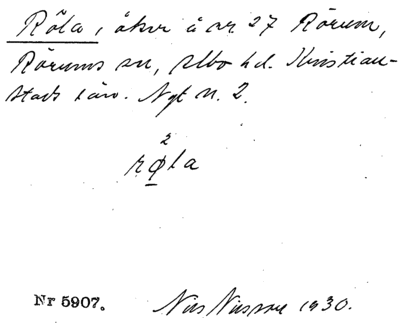 Röla, åker å nr 27 Rörum,
Rörums sn, Albo hd. Kristian-
stads län. Nyt n. 2.
2
røla
Nr 5907.
Nils Nilsson 1930.